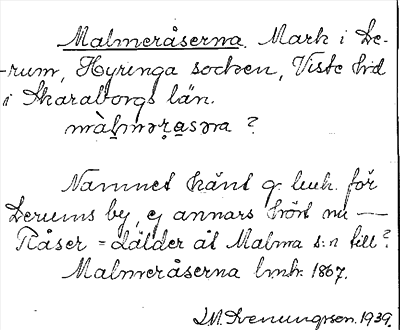 Malmeråserna. Mark i De-
-rum, Hyringa socken, Viste hd
i Skaraborgs län.
màlməra̱səṉa ?
Namnet känt gr. huk. för
Derums by, ej annars hört nu —
Råser = dälder åt Malma s:n till?
Malmeråserna lmh. 1867.
I.M. Svenungsson. 1939.